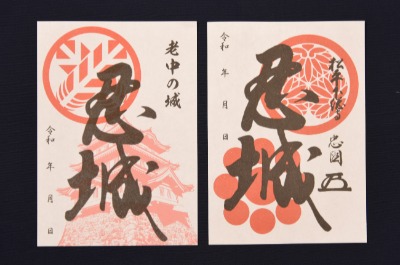 老中の城
忍城
令和 年 月 日
松平下総守
忠国
忍城
令和 年 月 日